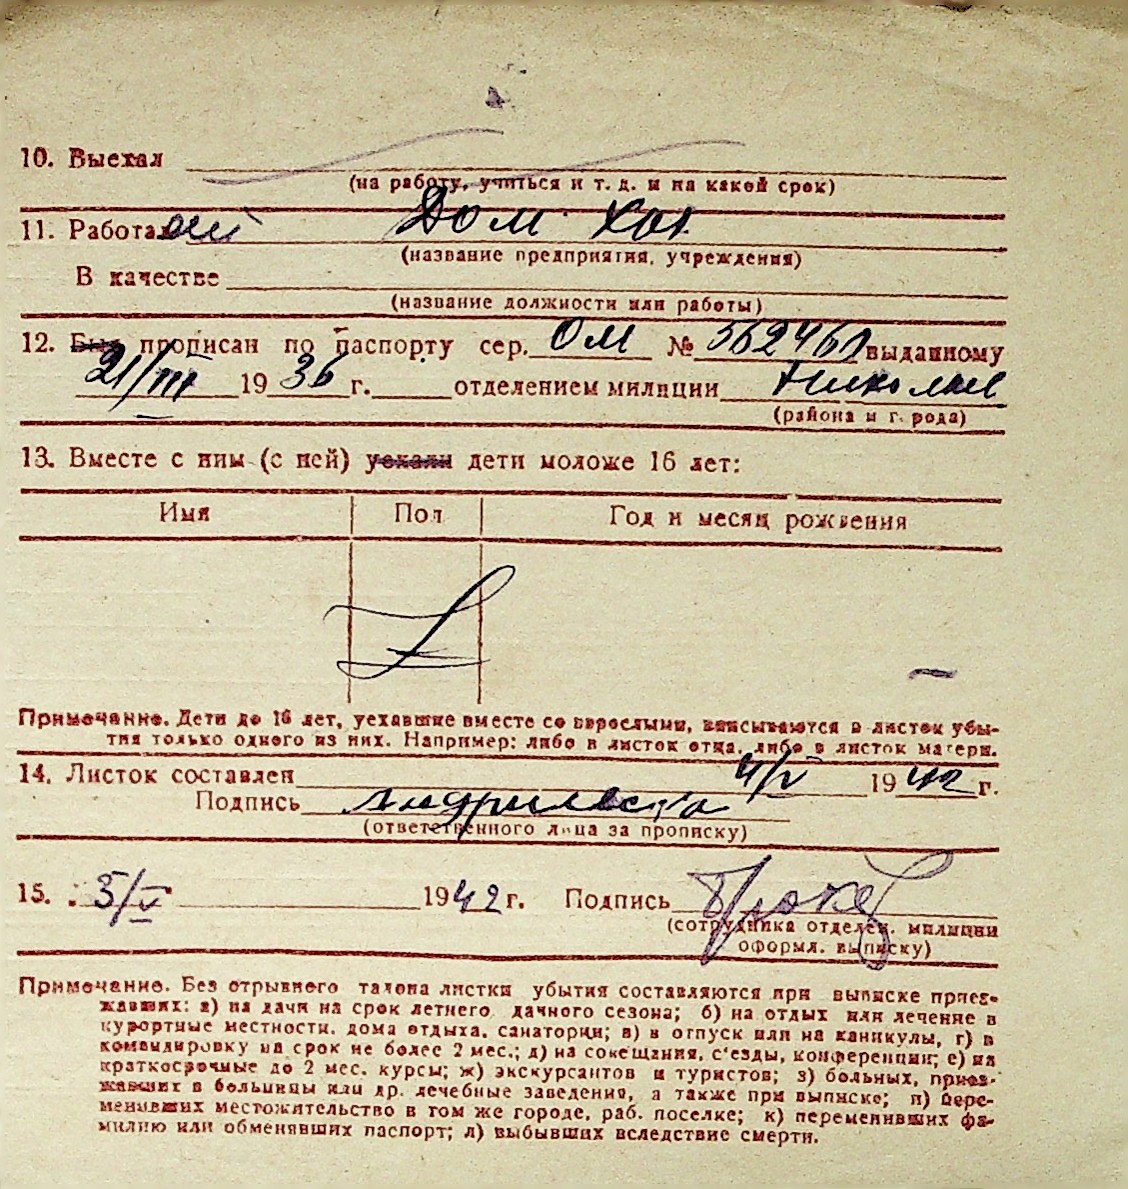 10. Выехал
(на работу, учиться и т. д. и на какой срок)
11. Работал Дом. Хоз
(название предприятия, учреждения)
В качестве
(название должности или работы)
12. Был прописан по паспорту сер. ОМ № выданному
21/III 1936 г. отделением милиции Николаев
(района и города)
13. Вместе с ним (с ней) уехали дети моложе 16 лет:
Имя Пол Год и месяц рождения
Примечание. Дети до 16 лет, уехавшие вместе со взрослыми, вписываются в листок убы-
тия только одного из них. Например: либо в листок отца, либо в листок матери.
14. Листок составлен 4/V 1942 г.
Подпись
(ответственного лица за прописку)
15. 5/V 1942 г. Подпись
(сотрудника отделен. милиции
оформл. выписку)
Примечание. Без отрывного талона листки убытия составляются при выписке приез-
жавших: а) на дачи на срок летнего дачного сезона; б) на отдых или лечение в
курортные местности, дома отдыха, санатории; в) в отпуск или на каникулы, г) в
командировку на срок не более 2 мес.; д) на совещания, с'езды, конференции; е) на
краткосрочные до 2 мес. курсы; ж) экскурсантов и туристов; з) больных, приез-
жавших в больницы или др. лечебные заведения, а также при выписке; и) пере-
менивших местожительство в том же городе, раб. поселке; к) переменивших фа-
милию или обменявших паспорт; л) выбывших вследствие смерти.